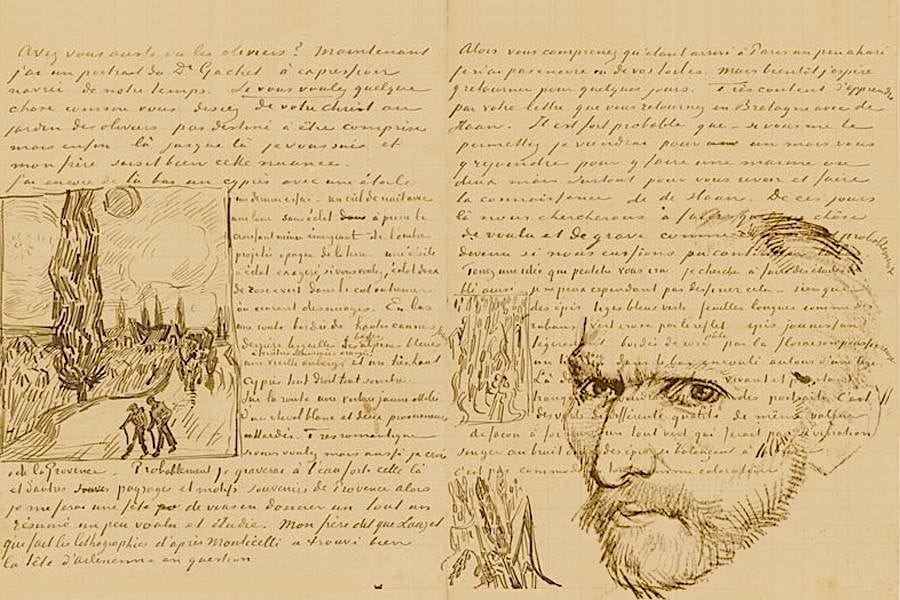 Avez vous aussi vu les oliviers? Maintenant
j'ai un portrait du Dr Gachet à expression
navrée de notre temps. Si vous voulez quelque
chose comme vous disiez de votre christ au
jardin des oliviers pas destiné à être compris
mais enfin là jusque là je vous suis et
mon frère saisit bien cette nuance.
J'ai encore de là bas un cyprès avec une étoile
un dernier essai - un ciel de nuit avec
une lune sans éclat à peine le
croissant mince émergeant de l'ombre
projetée opaque de la terre - une étoile
à éclat exagéré si vous voulez, éclat doux
de rose & vert dans le ciel outremer
où courent des nuages. En bas
une route bordée de hautes cannes
derrière lesquelles les basses Alpines bleues
à fenêtres illuminées orangées
une vieille auberge et un très haut
cyprès tout droit tout sombre.
Sur la route une voiture jaune attelée
d'un cheval blanc et deux promeneurs
attardés. Très romantique
si vous voulez mais aussi je crois
de la Provence. Probablement je graverai à l'eau forte celle là
et d'autres paysages et motifs souvenirs de Provence alors
je me ferai une fête de vous en donner un tout un
résumé un peu voulu et étudié. Mon frère dit que Lauzet
qui fait les lithographies d'après Monticelli a trouvé bien
la tête d'arlésienne en question
Alors vous comprenez qu'étant arrivé à Paris un peu ahuri
je n'ai pas encore vu de vos toiles. Mais bientôt j'espère
y retourner pour quelques jours. Très content d'apprendre
par votre lettre que vous retournez en Bretagne avec de
Haan. Il est fort probable que - si vous me le
permettez je viendrai pour un mois vous
y rejoindre pour y faire une marine ou
deux mais surtout pour vous revoir et faire
la connaissance de de Haan. De ces jours
là nous chercherons à faire quelque chose
de voulu et de grave comme probablement
devenu si nous eussions pu continuer
Tenez une idée qui peut être vous ira je cherche à faire des études
blé ainsi je ne peux cependant pas dessiner cela - rien que
des épis tiges bleu vert feuilles longues comme des
rubans vert & rose par le reflet épis jaunissant
légèrement bordés de rose par la floraison
dans le bas autour d'une tige.
vivant et
des portraits. C'est
des verts de différente qualité de même valeur
de façon à former un tout vert qui ferait par sa vibration
songer au bruit des épis se balançant à
c'est pas commode comme coloration